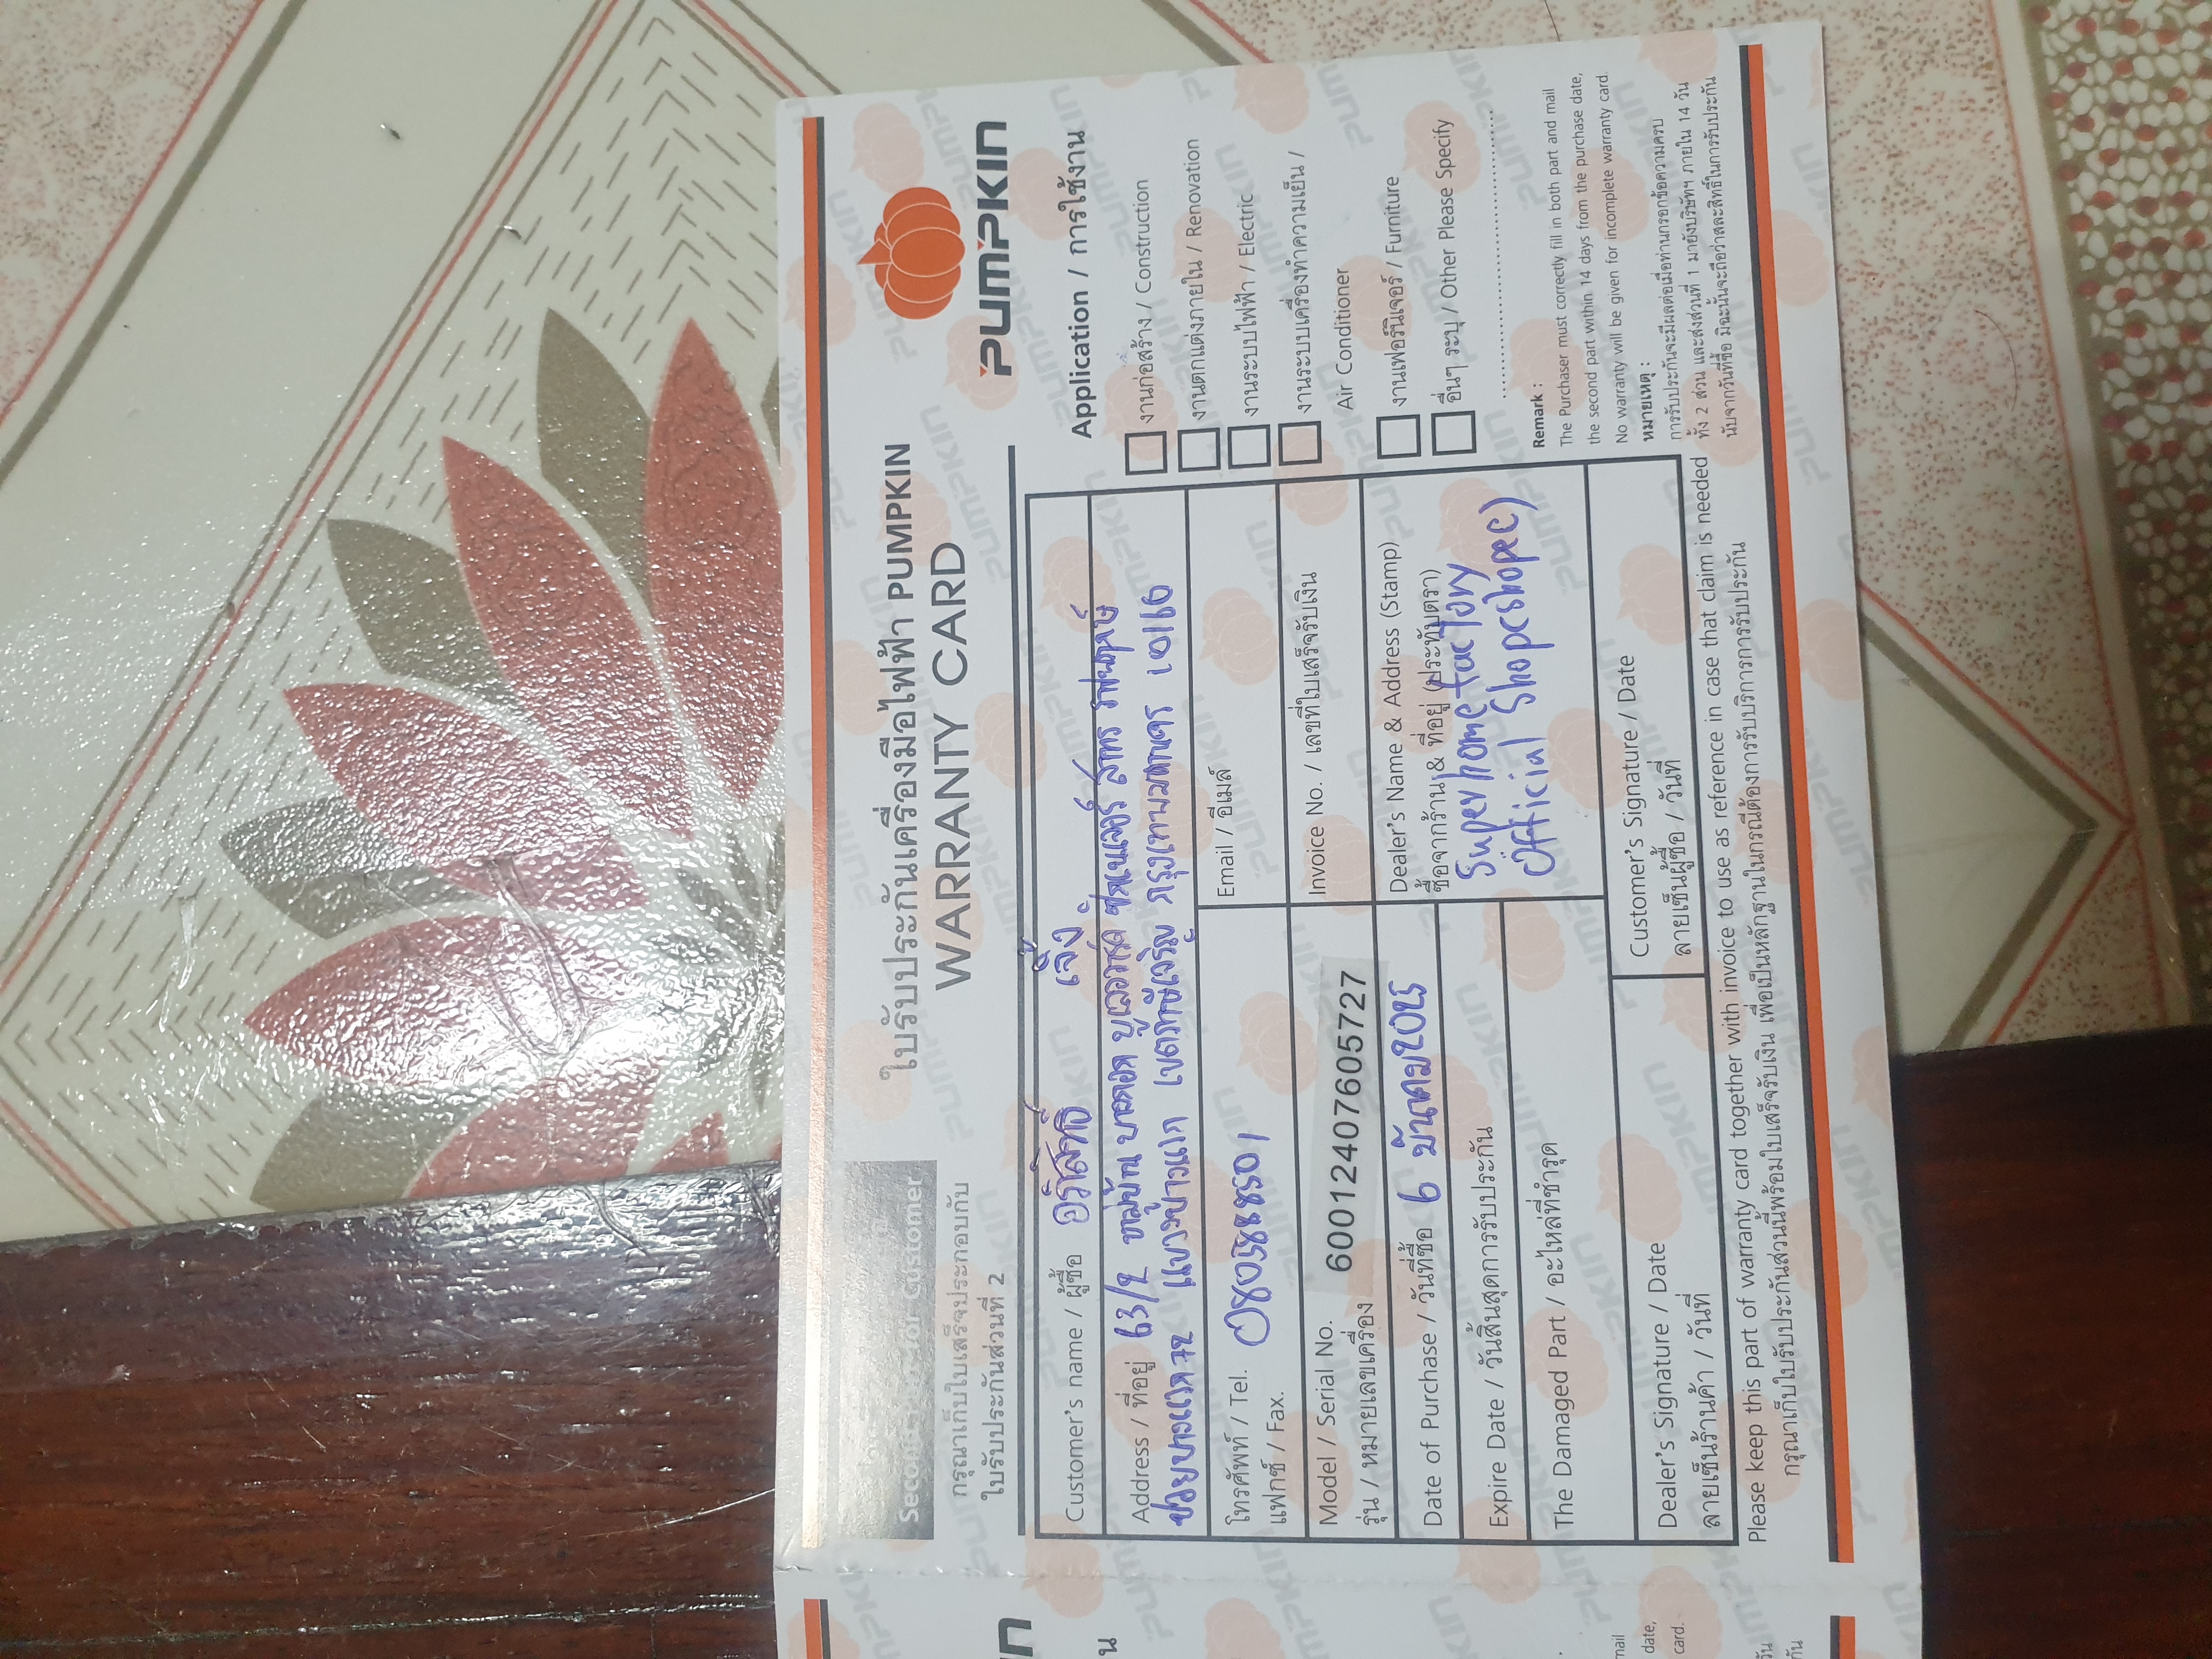 Second Part for Customer
กรุณาเก็บใบเสร็จประกอบกับ
ใบรับประกันส่วนที่ 2
ใบรับประกันเครื่องมือไฟฟ้า PUMPKIN
WARRANTY CARD
PUMPKIN
Customer's name / ผู้ซื้อ อริสิทธิ์ เจ็ง
Address / ที่อยู่ 63/2 หมู่บ้าน บางกอก บูเลอวาร์ด ซิกเนเจอร์ สาทร ราชพฤกษ์
ซอยบางแวก 72 แขวงบางแวก เขตภาษีเจริญ กรุงเทพมหานคร 10160
โทรศัพท์ / Tel. 0805888501
แฟกซ์ / Fax.
Email / อีเมล์
Model / Serial No.
รุ่น / หมายเลขเครื่อง 600124076057​27
Invoice No. / เลขที่ใบเสร็จรับเงิน
Date of Purchase / วันที่ซื้อ 6 มีนาคม2025
Dealer's Name & Address (Stamp)
ซื้อจากร้าน & ที่อยู่ (ประทับตรา)
Superhomefactory
Official Shop(shopee)
Expire Date / วันสิ้นสุดการรับประกัน
The Damaged Part / อะไหล่ที่ชำรุด
Dealer's Signature / Date
ลายเซ็นร้านค้า / วันที่
Customer's Signature / Date
ลายเซ็นผู้ซื้อ / วันที่
Application / การใช้งาน
งานก่อสร้าง / Construction
งานตกแต่งภายใน / Renovation
งานระบบไฟฟ้า / Electric
งานระบบเครื่องทำความเย็น /
Air Conditioner
งานเฟอร์นิเจอร์ / Furniture
อื่นๆ ระบุ / Other Please Specify
Remark :
The Purchaser must correctly fill in both part and mail
the second part within 14 days from the purchase date,
No warranty will be given for incomplete warranty card.
หมายเหตุ :
การรับประกันจะมีผลต่อเมื่อท่านกรอกข้อความครบ
ทั้ง 2 ส่วน และส่งส่วนที่ 1 มายังบริษัทฯ ภายใน 14 วัน
นับจากวันที่ซื้อ มิฉะนั้นจะถือว่าสละสิทธิ์ในการรับประกัน
Please keep this part of warranty card together with invoice to use as reference in case that claim is needed
กรุณาเก็บใบรับประกันส่วนนี้พร้อมใบเสร็จรับเงิน เพื่อเป็นหลักฐานในกรณีต้องการรับบริการการรับประกัน